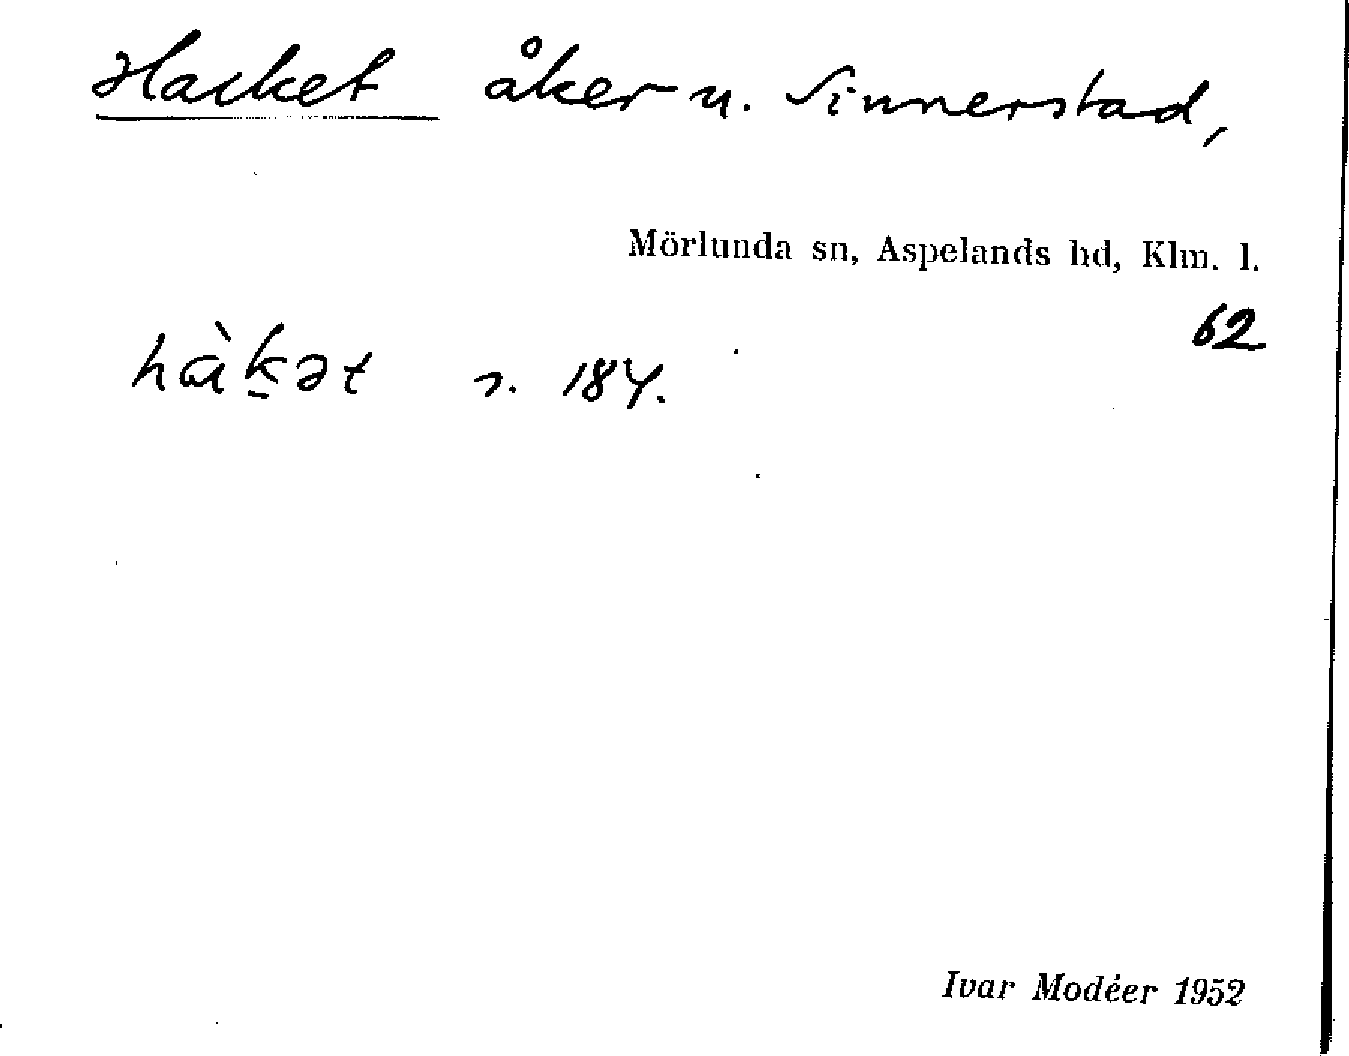 Hacket åker u. Sinnerstad,
Mörlunda sn, Aspelands hd, Klm. l.
62
hàk̠ət s. 184.
Ivar Modéer 1952